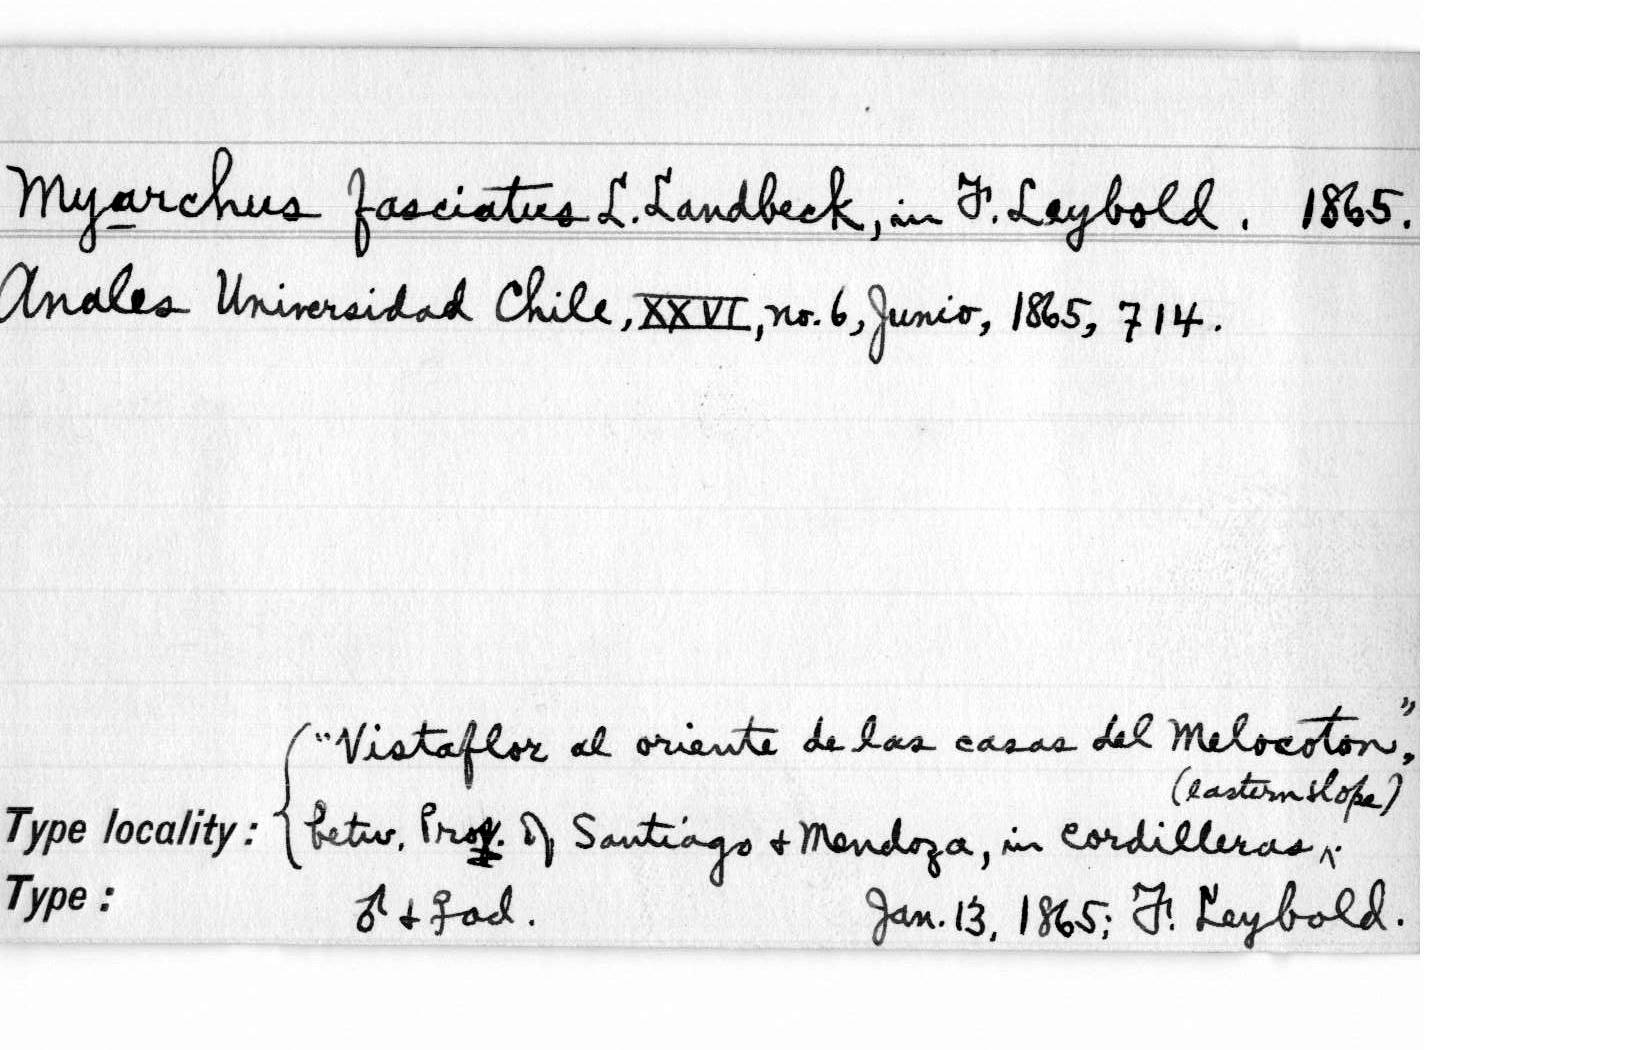 Myarchus fasciatus L. Landbeck, in F. Leybold. 1865.
Anales Universidad Chile, XXVI, no. 6, Junio, 1865, 714.
"Vistaflor al oriente de las casas del Melocoton,"
(eastern slope)
Type locality: betw. Prov. of Santiago + Mendoza, in cordilleras ^.
Type: ♂ + ♀ ad. Jan. 13, 1865; F. Leybold.